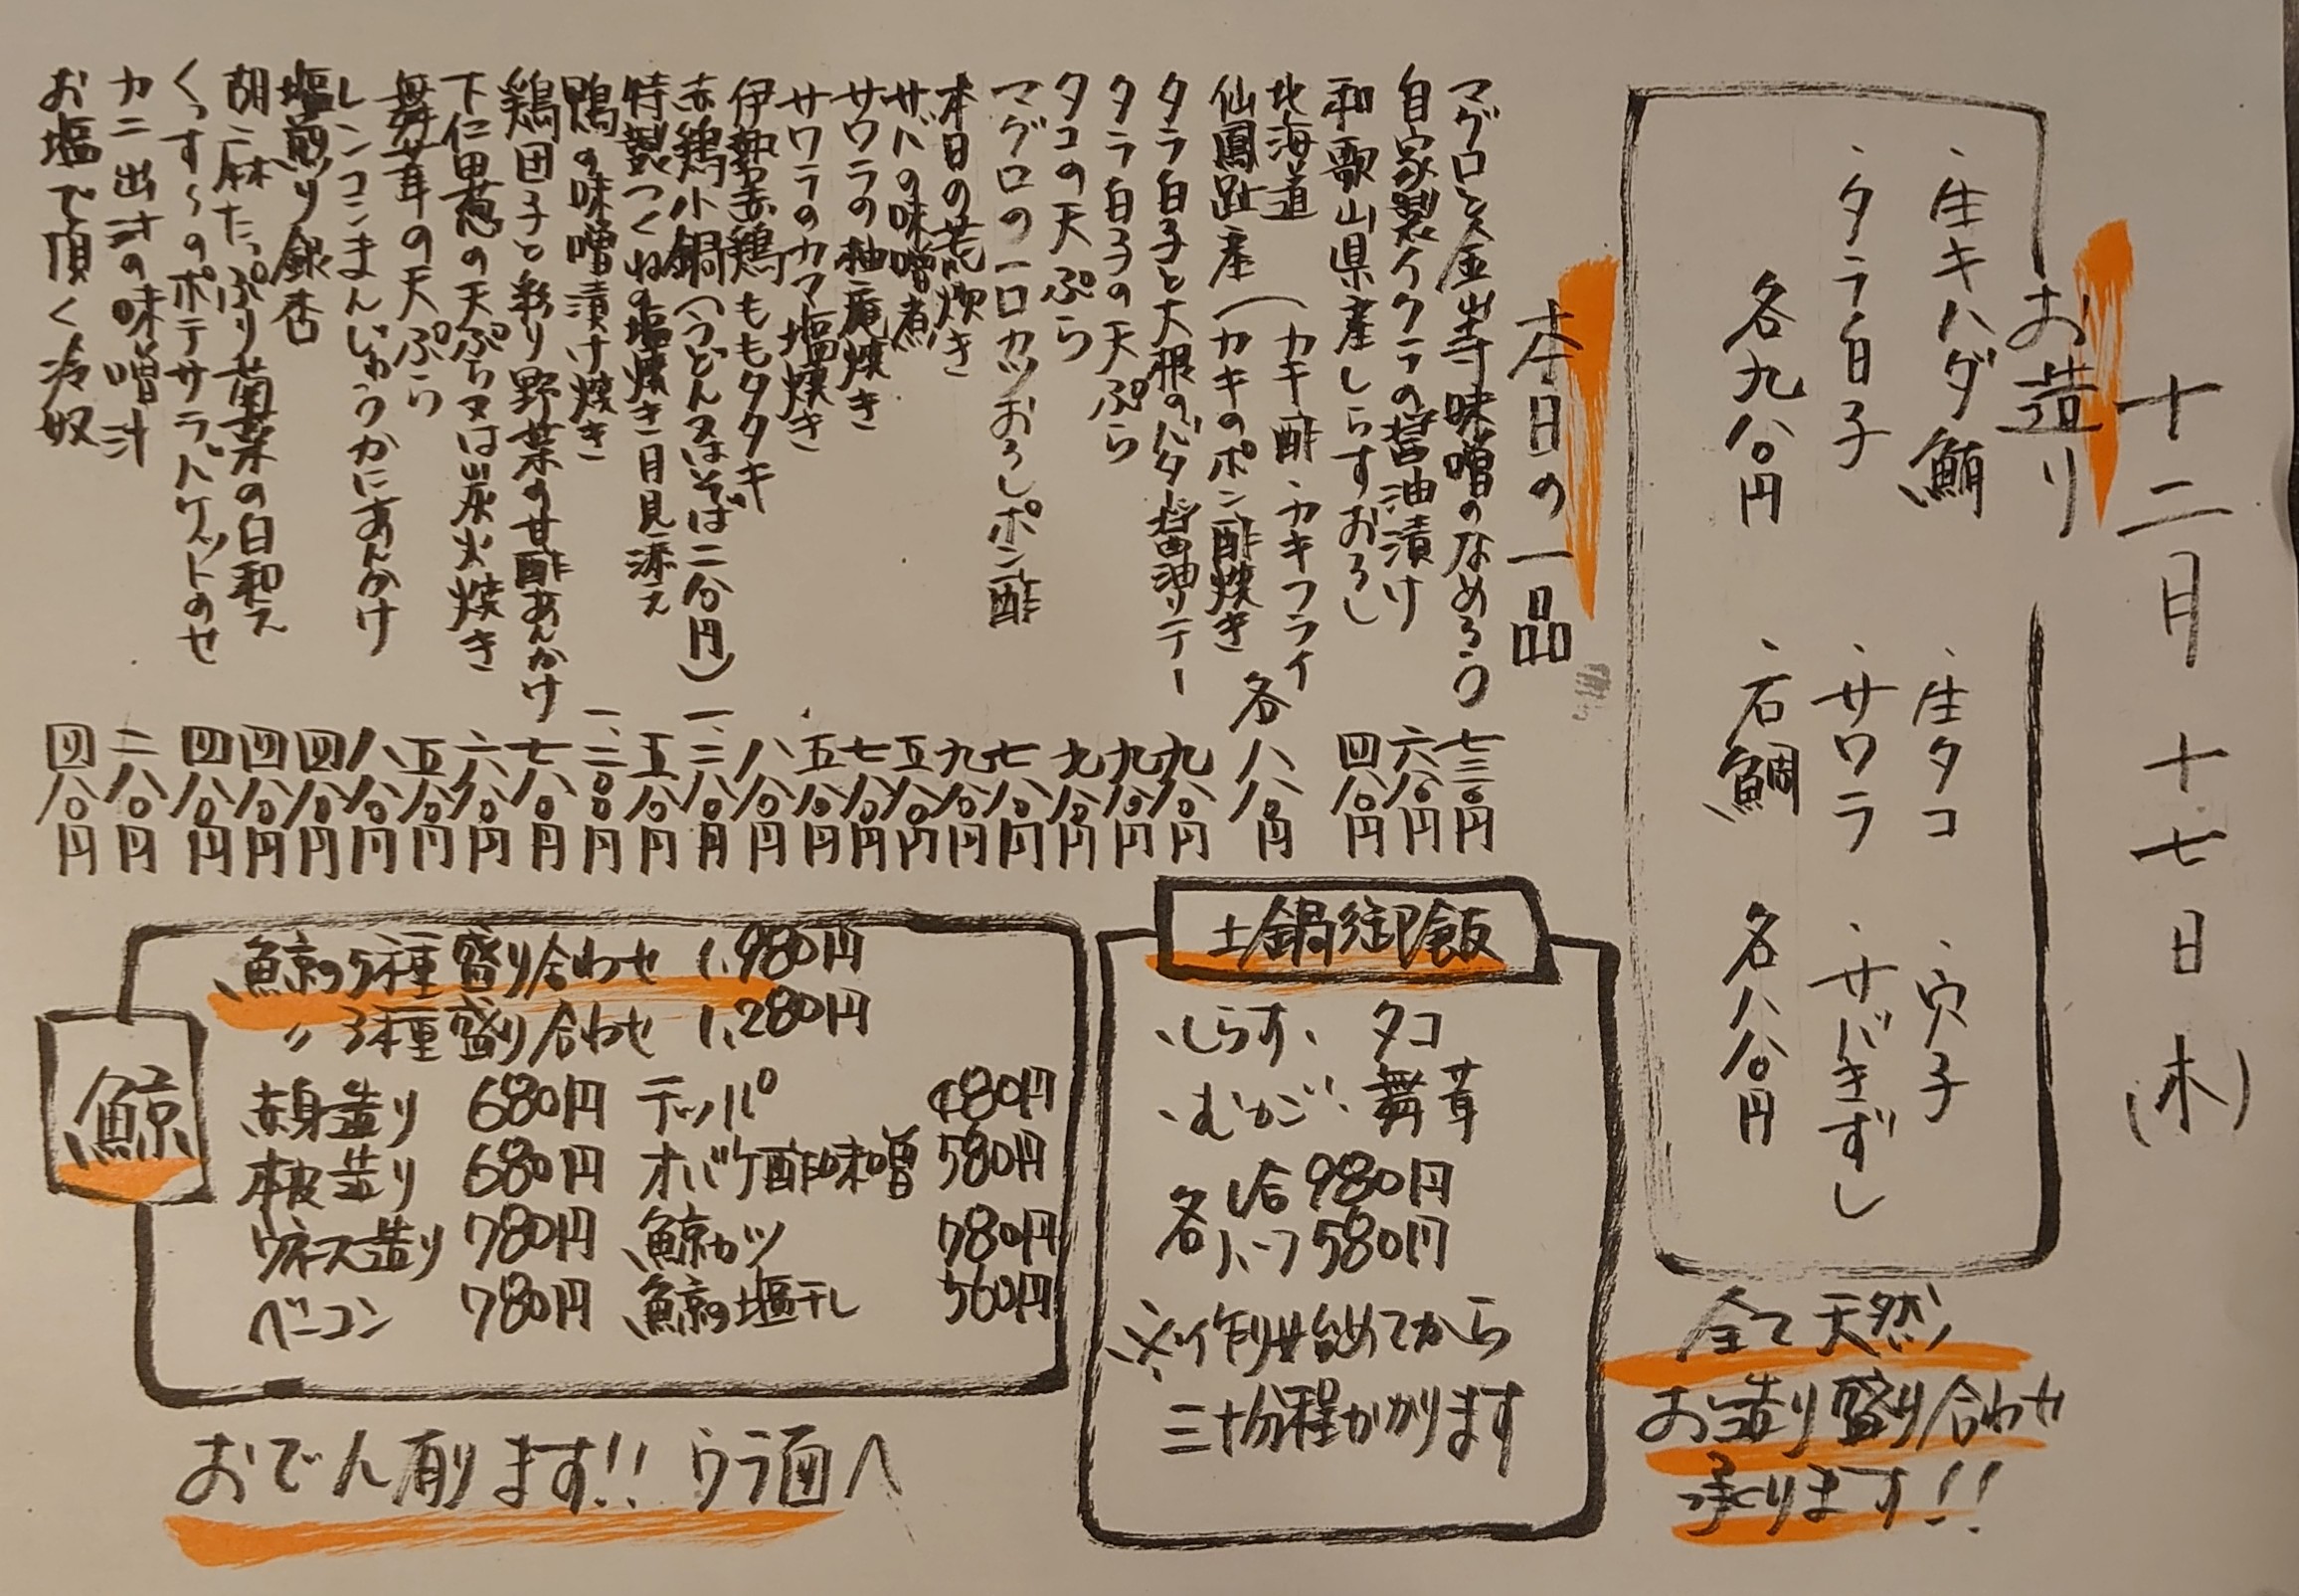 十二月十七日(木)
お造り
・生キハダ鮪
・生タコ
・穴子
・タラ白子
・サワラ
・サバきずし
各九八〇円
・石鯛
各八八〇円
全て天然
お造り盛り合わせ
承ります!!
本日の一品
マグロと金山寺味噌のなめろう 七三〇円
自家製イクラの醤油漬け 六八〇円
和歌山県産しらすおろし 四八〇円
北海道 (カキ酢・カキフライ
仙鳳趾産 (カキのポン酢焼き 各八八〇円
タラ白子と大根のバター醤油ソテー 九八〇円
タラ白子の天ぷら 九八〇円
タコの天ぷら 九八〇円
マグロの一口カツおろしポン酢 七八〇円
本日の荒炊き 九八〇円
サバの味噌煮 五八〇円
サワラの柚庵焼き 七八〇円
サワラのカマ塩焼き 五八〇円
伊勢赤鶏ももタタキ 八八〇円
赤鶏小鍋(うどん又はそば二八〇円) 一、二八〇円
特製つくねの塩焼き 月見添え 五八〇円
鴨の味噌漬け焼き 一、二〇〇円
鶏団子と彩り野菜の甘酢あんかけ 七八〇円
下仁田葱の天ぷら又は炭火焼き 六八〇円
舞茸の天ぷら 五八〇円
レンコンまんじゅうかにあんかけ 八八〇円
塩煎り銀杏 四八〇円
胡麻たっぷり菊菜の白和え 四八〇円
くっすーのポテサラ バケットのせ 四八〇円
カニ出汁の味噌汁 二八〇円
お塩で頂く冷奴 四八〇円
土鍋御飯
・しらす・タコ
・むかご・舞茸
各 1合 980円
各 ハーフ 580円
※作り始めてから
三十分程かかります
鯨
鯨の5種盛り合わせ 1,980円
〃 3種盛り合わせ 1,280円
赤身造り 680円 テッパ 480円
本皮造り 680円 オバケ酢味噌 580円
ウネス造り 780円 鯨カツ 780円
ベーコン 780円 鯨の塩干し 560円
おでん有ります!! ウラ面へ